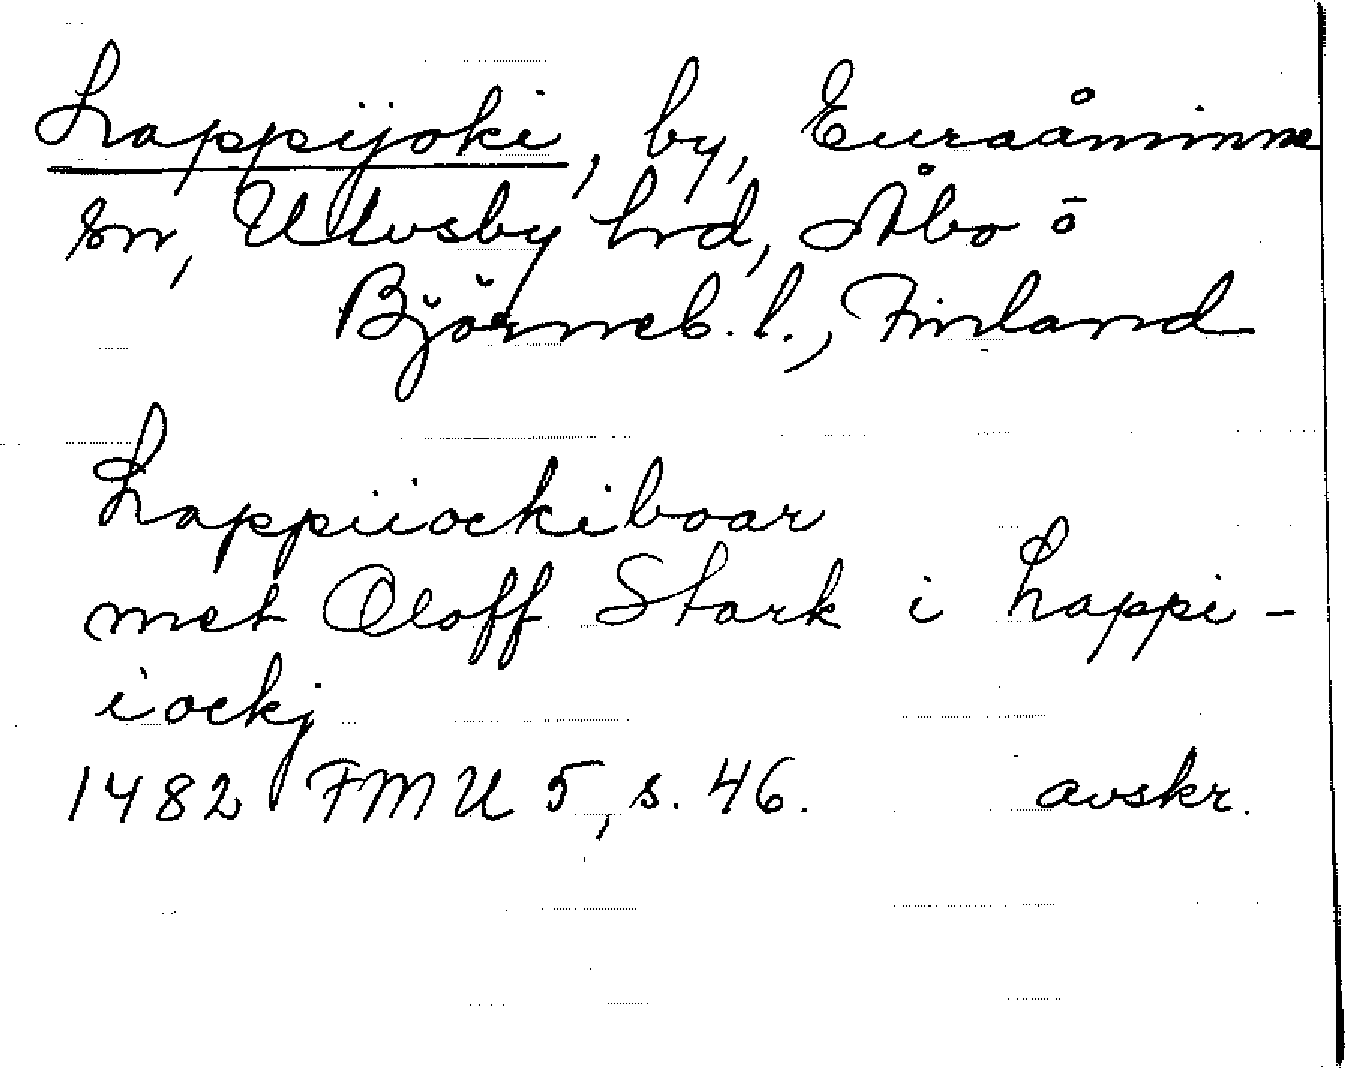 Lappijoki, by, Euraåminne
sn, Ulvsby hrd, Åbo o
Björneb. l., Finland
Lappiiockiboar
met Oloff Stark i Lappi-
iockj
1482 FMU 5, s. 46. avskr.